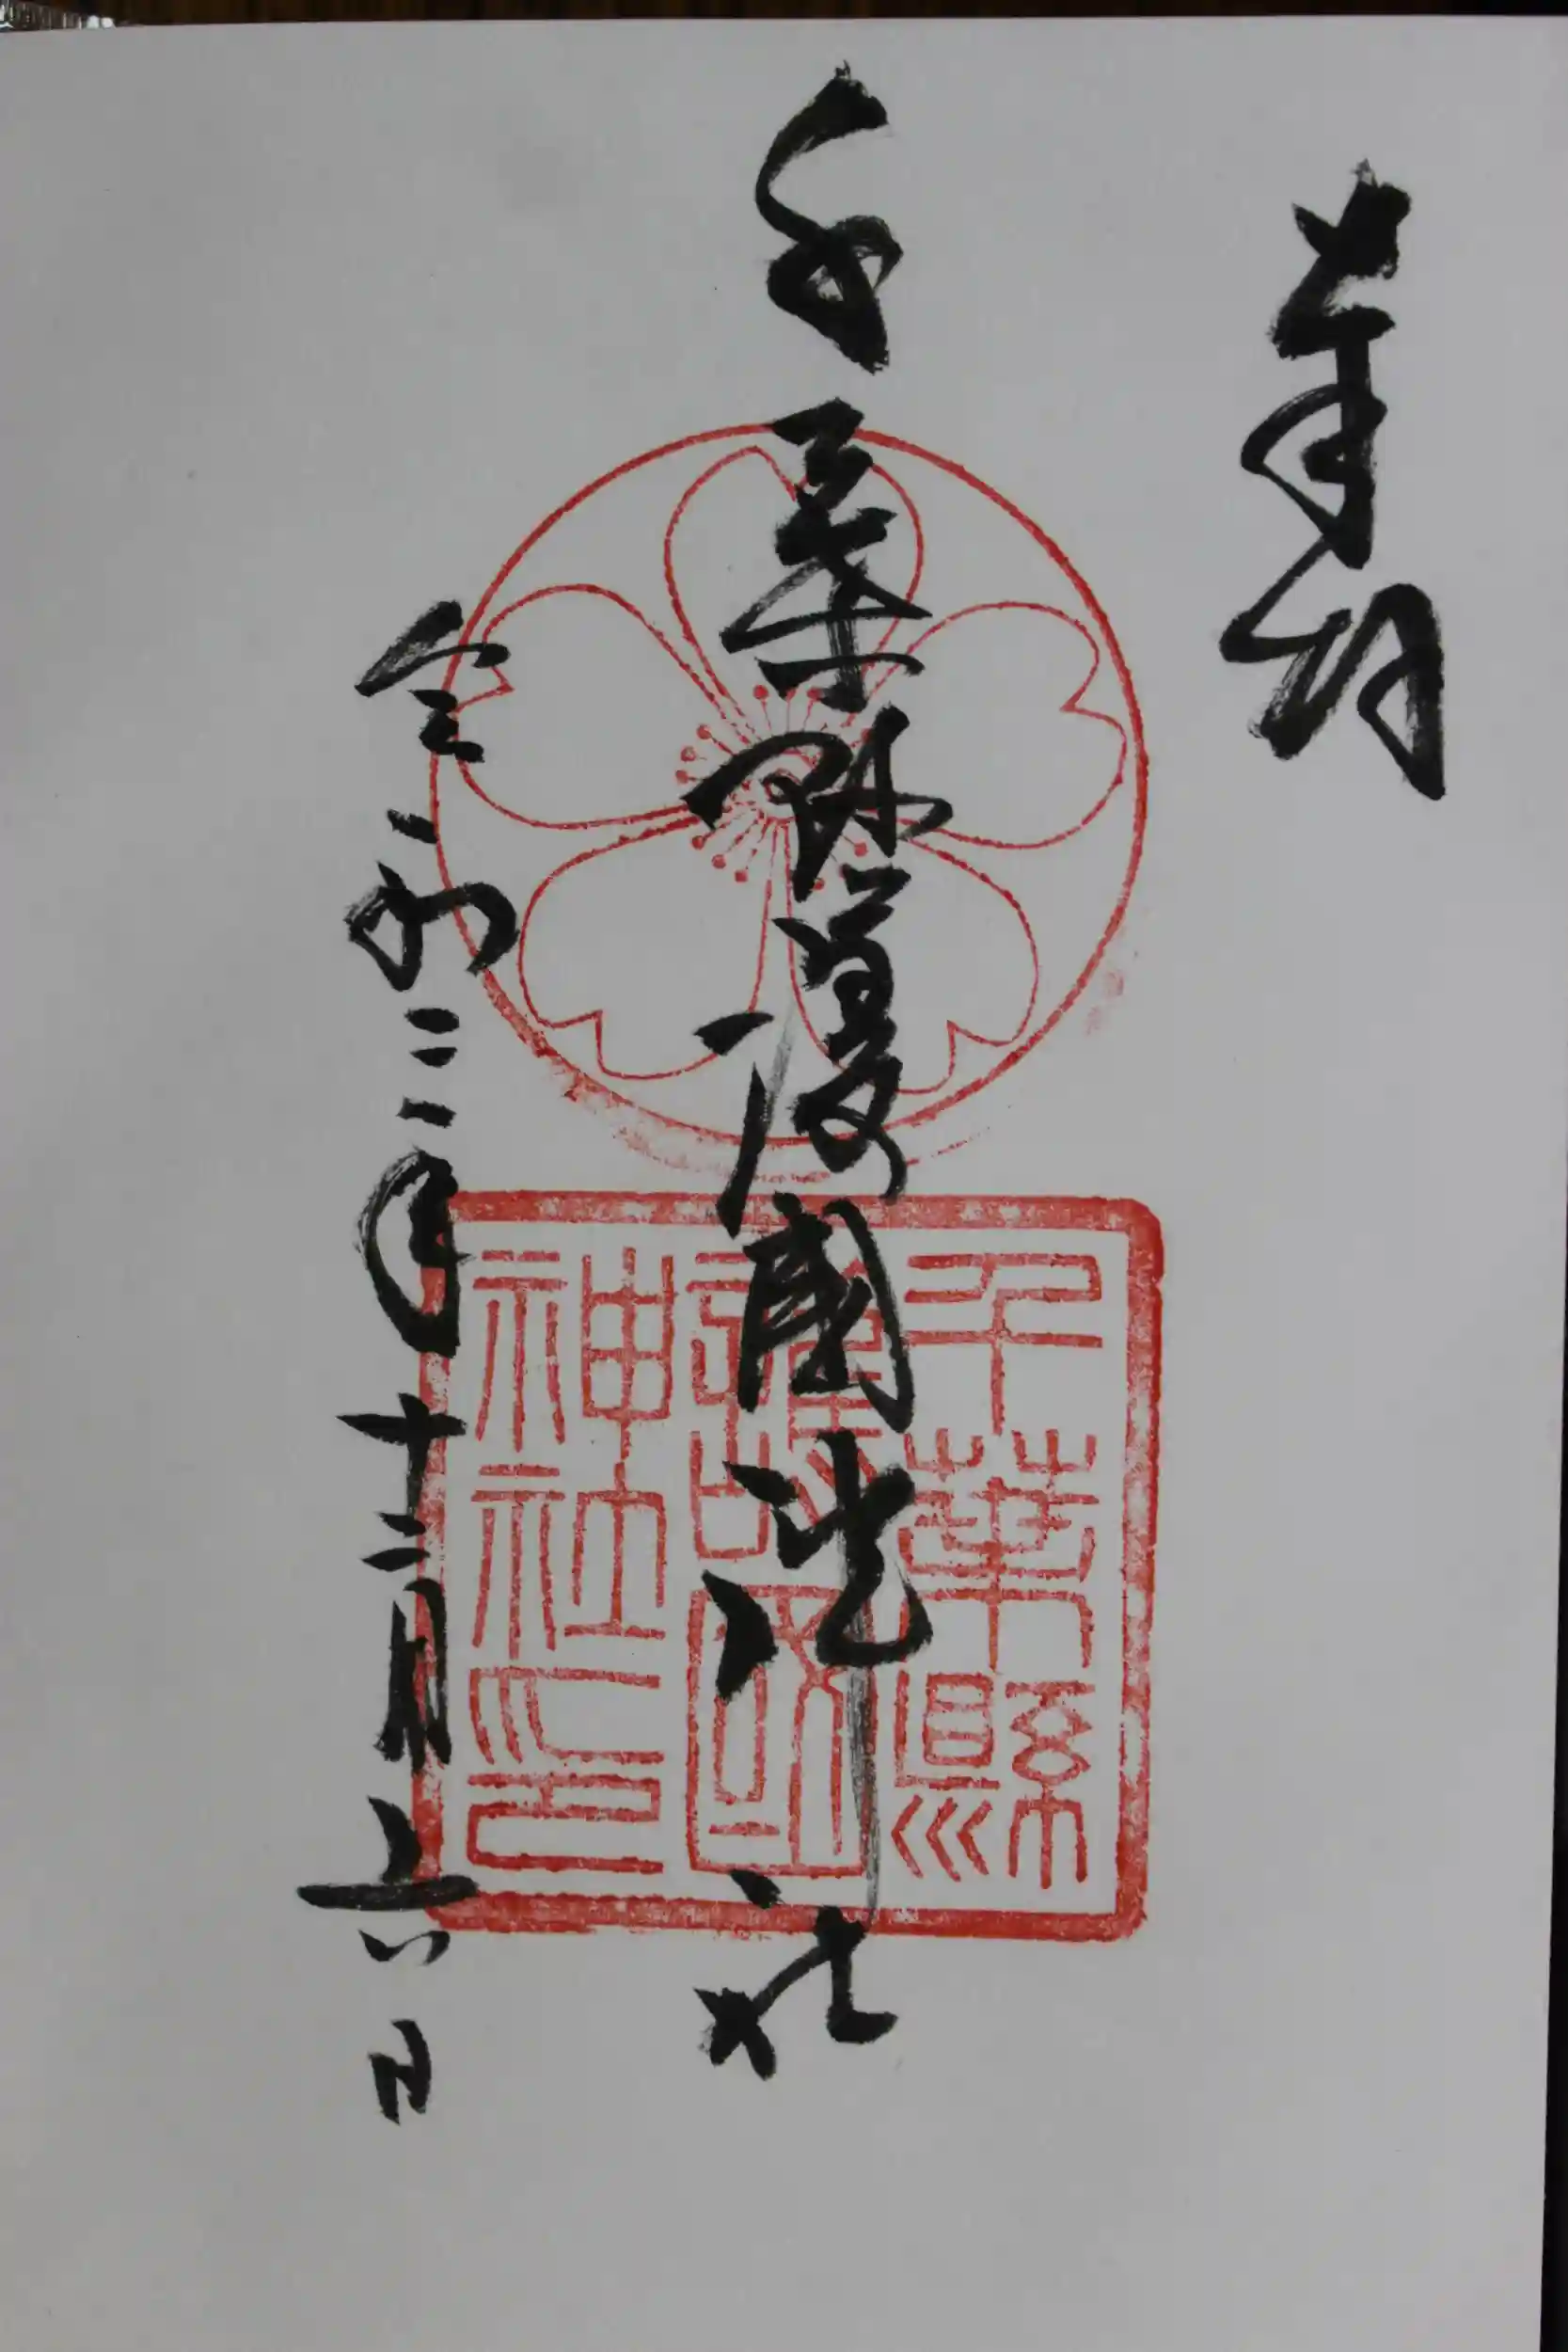 奉拝
千葉縣護國神社
令和三年十二月六日
千葉縣
護國
神社之印